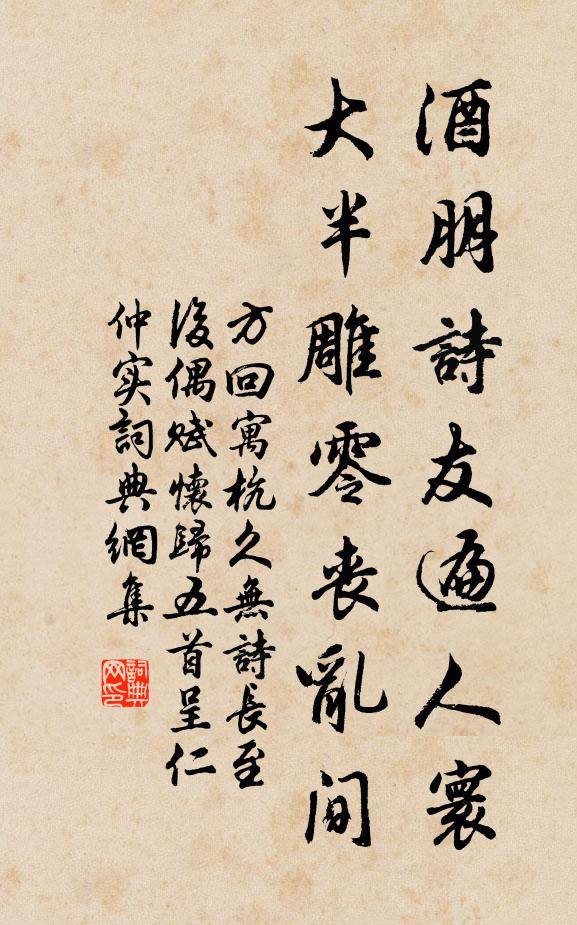 酒朋詩友遍人寰
大半雕零丧亂间
方回寓杭久無詩長至
後偶赋懷歸五首呈仁
仲实詞典網集
詞典
网印